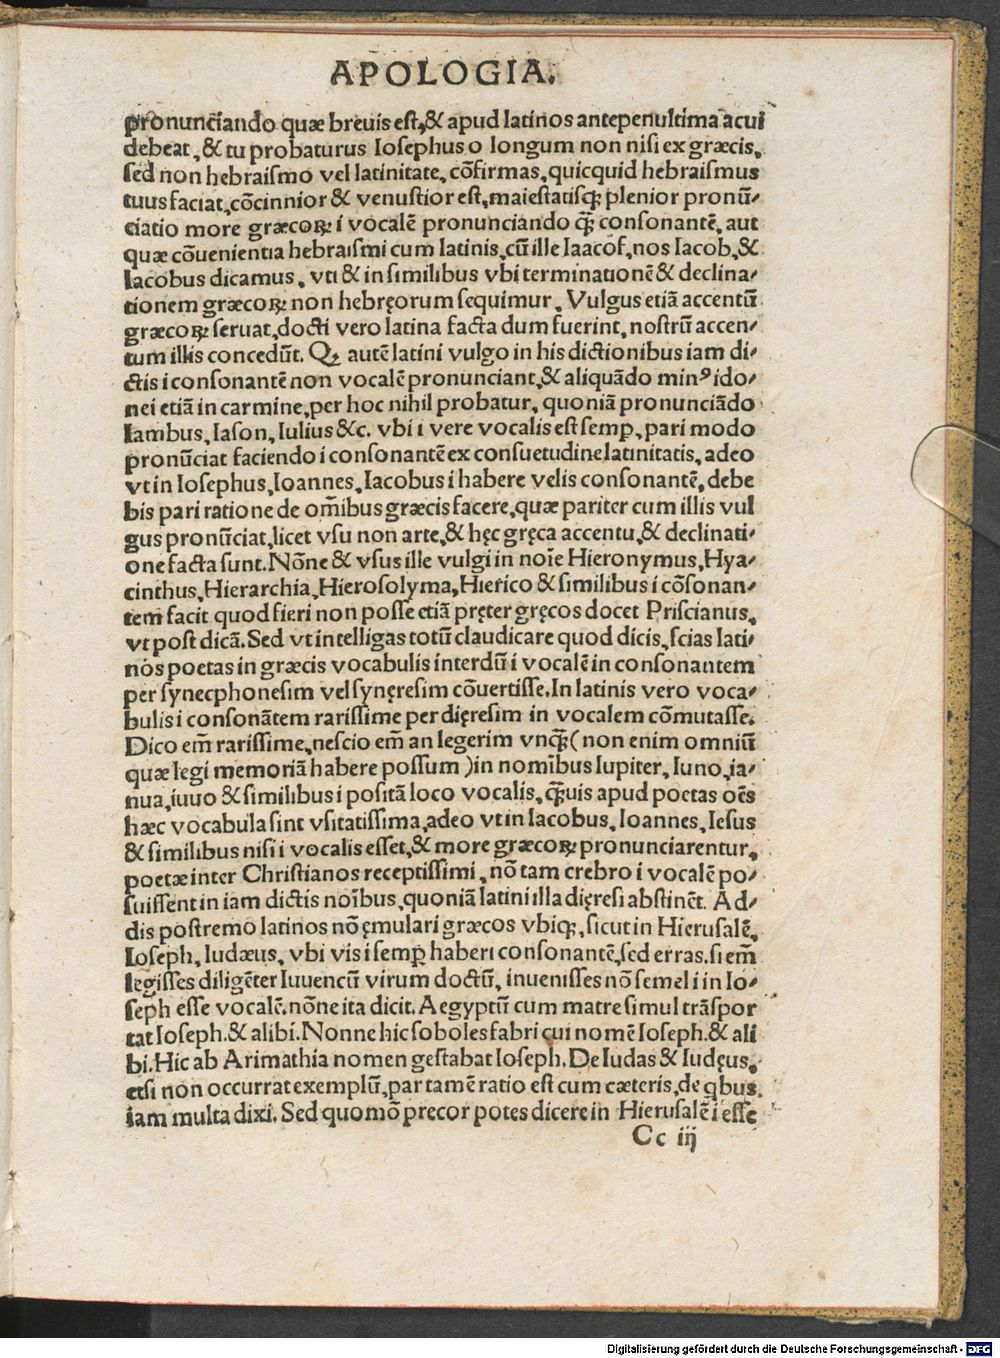 APOLOGIA.
pronunciando quæ breuis est, & apud latinos antepenultima acui
debeat, & tu probaturus Iosephus o longum non nisi ex græcis,
sed non hebraismo vel latinitate, cōfirmas, quicquid hebraismus
tuus faciat, cōcinnior & venustior est, maiestatisqꝫ plenior pronū-
ciatio more græcoꝝ i vocalē pronunciando qꝫ̄ consonantē, aut
quæ cōuenientia hebraismi cum latinis, cū ille Iaacof, nos Iacob, &
Iacobus dicamus, vti & in similibus vbi terminationē & declina-
tionem græcoꝝ non hebręorum sequimur. Vulgus etiā accentū
græcoꝝ seruat, docti vero latina facta dum fuerint, nostrū accen-
tum illis concedūt. Qꝫ autē latini vulgo in his dictionibus iam di-
ctis i consonantē non vocalē pronunciant, & aliquādo minꝰ ido-
nei etiā in carmine, per hoc nihil probatur, quoniā pronunciādo
Iambus, Iason, Iulius &c. vbi i vere vocalis est semꝑ, pari modo
pronūciat faciendo i consonantē ex consuetudine latinitatis, adeo
vt in Iosephus, Ioannes, Iacobus i habere velis consonantē, debe
bis pari ratione de om̄ibus græcis facere, quæ pariter cum illis vul
gus pronūciat, licet vsu non arte, & hęc gręca accentu, & declinati-
one facta sunt. Nōne & vsus ille vulgi in noīe Hieronymus, Hya-
cinthus, Hierarchia, Hierosolyma, Hierico & similibus i cōsonan-
tem facit quod fieri non posse etiā pręter gręcos docet Priscianus,
vt post dicā. Sed vt intelligas totū claudicare quod dicis, scias lati-
nos poetas in græcis vocabulis interdū i vocalē in consonantem
per synecphonesim vel synęresim cōuertisse. In latinis vero voca-
bulis i consonātem rarissime per dięresim in vocalem cōmutasse.
Dico em̄ rarissime, nescio em̄ an legerim vnqꝫ̄ (non enim omniū
quæ legi memoriā habere possum) in nomībus Iupiter, Iuno, ia-
nua, iuuo & similibus i positā loco vocalis, qꝫ̄uis apud poetas oēs
hæc vocabula sint vsitatissima, adeo vt in Iacobus, Ioannes, Iesus
& similibus nisi i vocalis esset, & more græcoꝝ pronunciarentur,
poetæ inter Christianos receptissimi, nō tam crebro i vocalē po-
suissent in iam dictis noībus, quoniā latini illa dięresi abstinēt. Ad-
dis postremo latinos nō ęmulari græcos vbiqꝫ, sicut in Hierusalē,
Ioseph, Iudæus, vbi vis i semꝑ haberi consonantē, sed erras. si em̄
legisses diligēter Iuuencū virum doctū, inuenisses nō semel i in Io-
seph esse vocalē. nōne ita dicit. Aegyptū cum matre simul trāspor
tat Ioseph. & alibi. Nonne hic soboles fabri cui nomē Ioseph. & ali
bi. Hic ab Arimathia nomen gestabat Ioseph. De Iudas & Iudęus,
etsi non occurrat exemplū, par tamē ratio est cum cæteris, de qbus
iam multa dixi. Sed quomō precor potes dicere in Hierusalē i esse
Cc iij
Digitalisierung gefördert durch die Deutsche Forschungsgemeinschaft - DFG